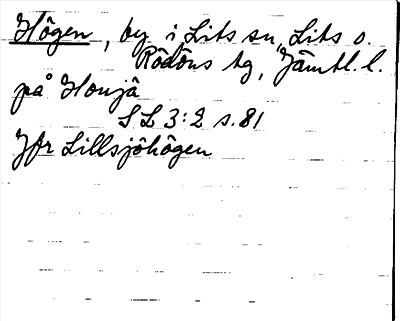 Högen, by i Lits sn, Lits o.
Rödöns tg, Jämtl. l.
på Honjä
SL 3:2 s. 81
Jfr Lillsjöhögen